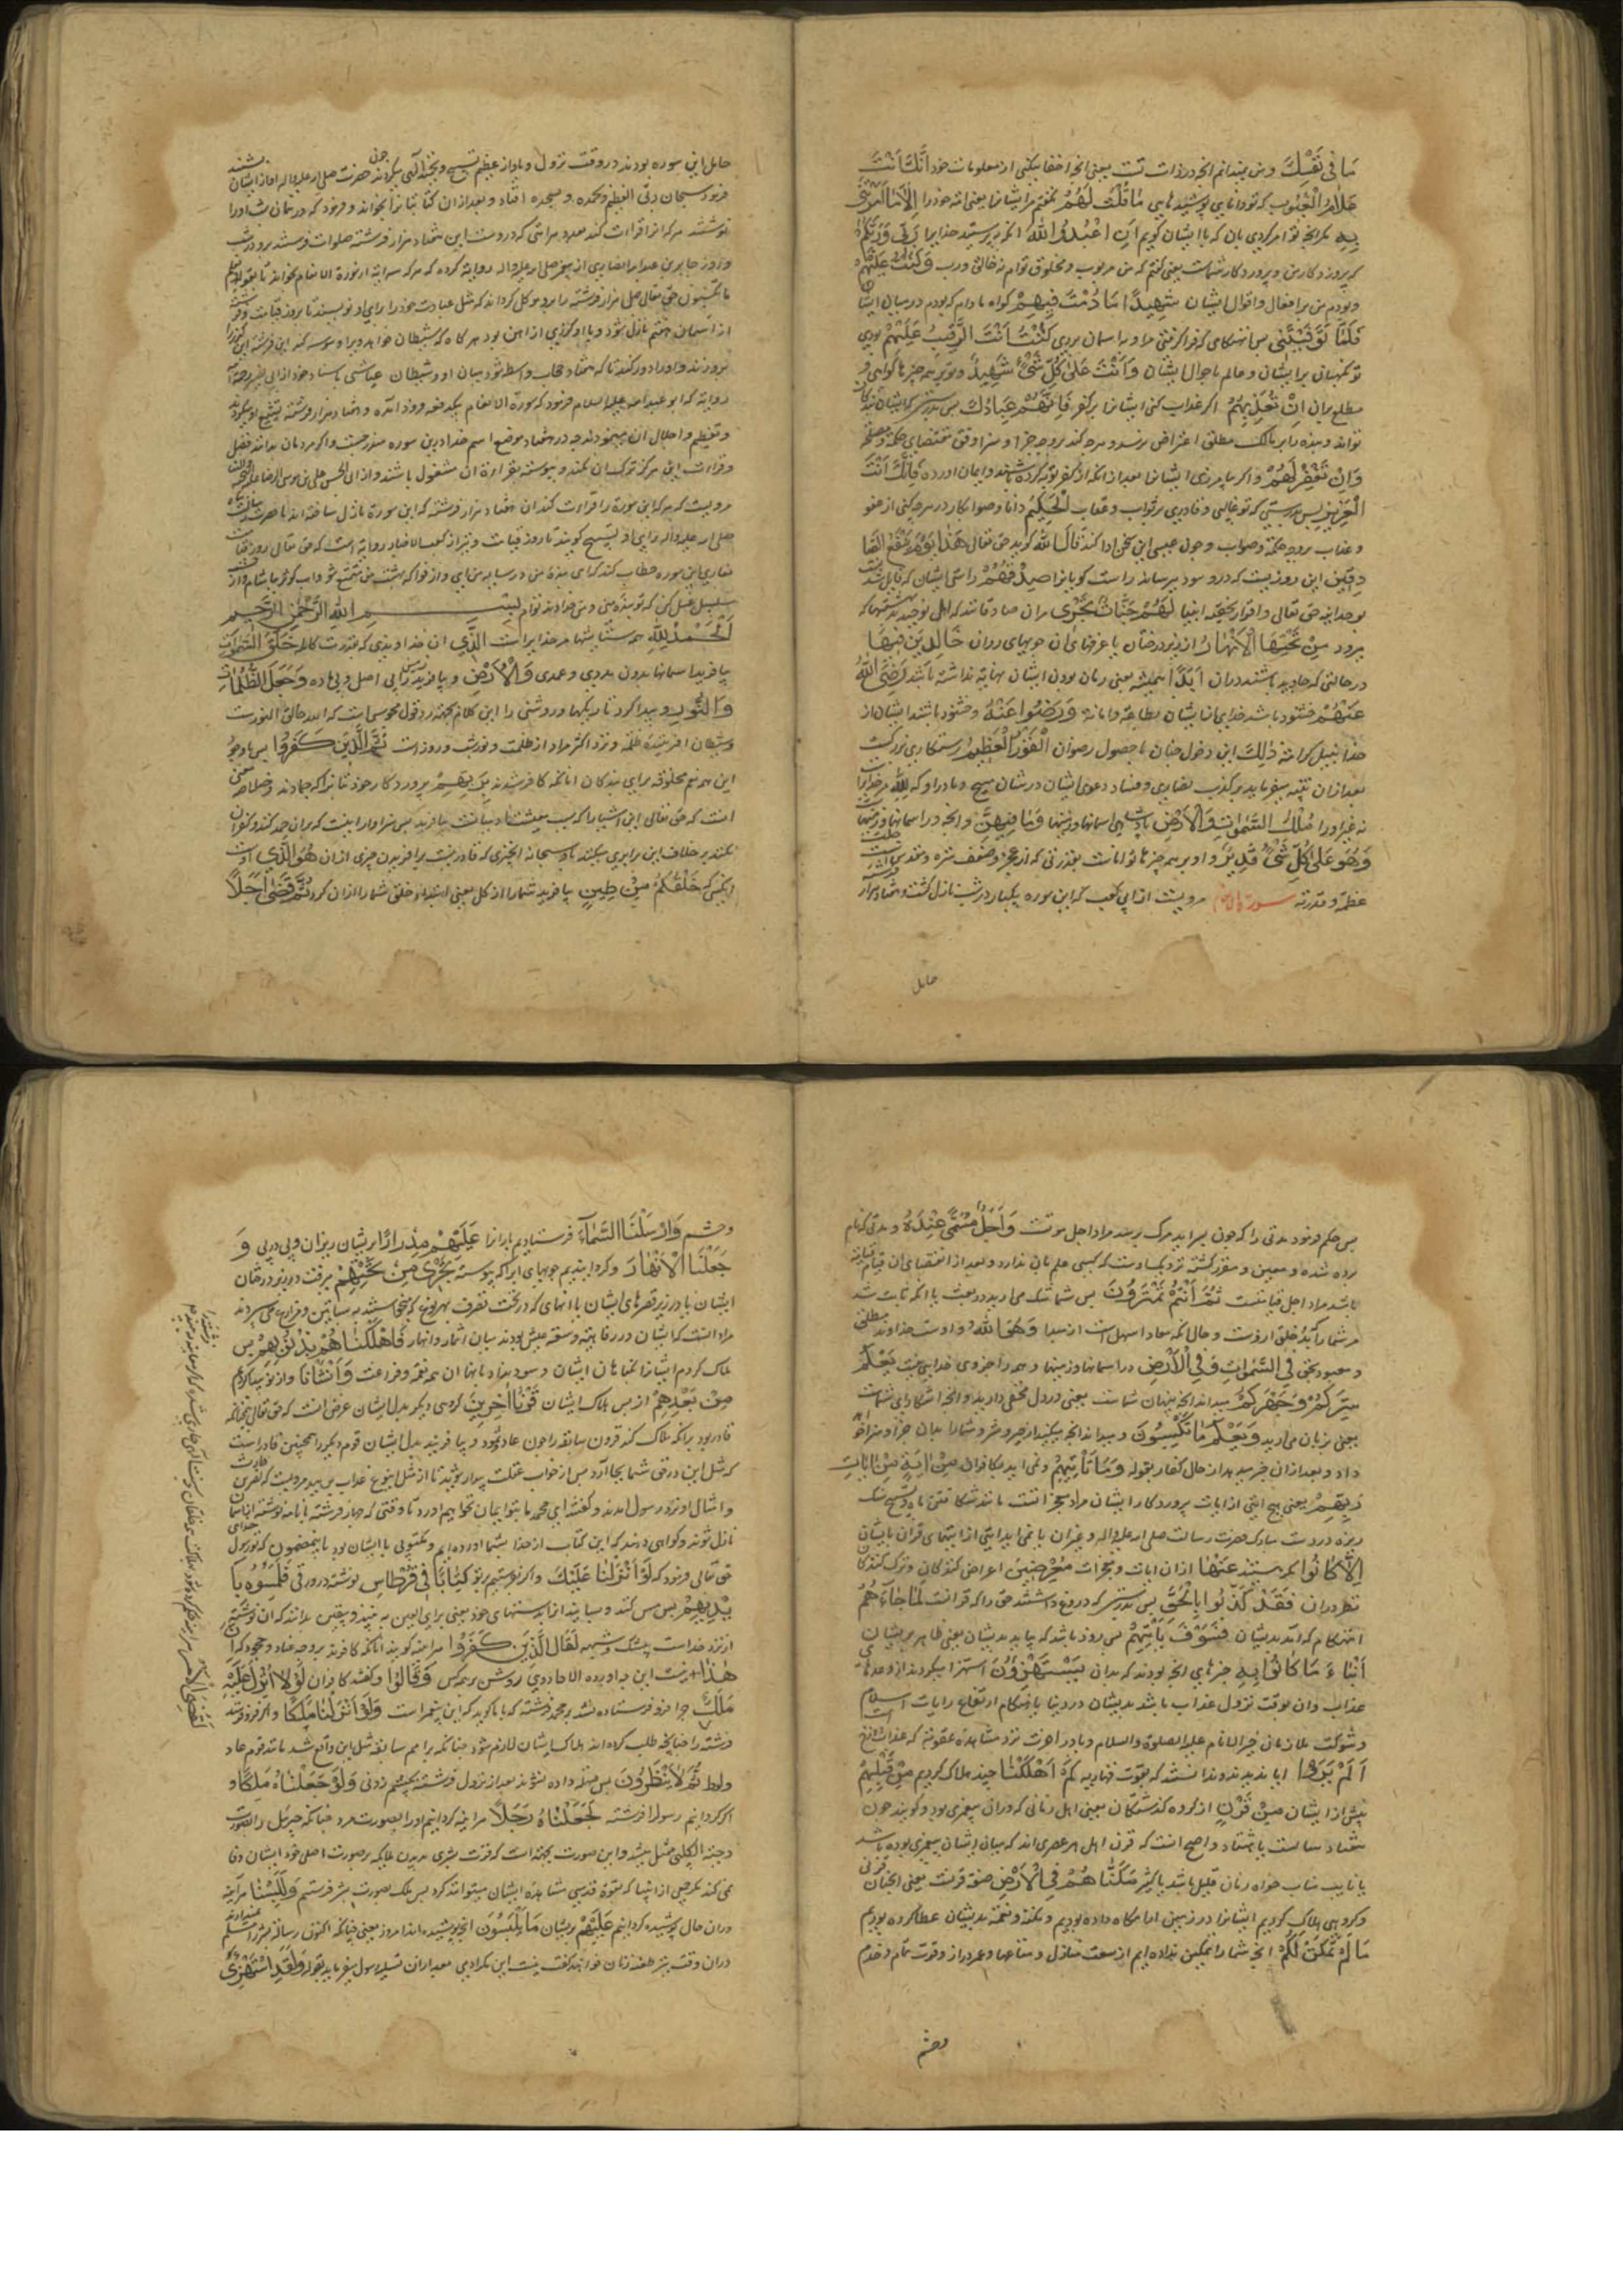 مَا فِي نَفْسِكَ ومن نمیدانم انچه در ذات تست یعنی انچه اخفا میکنی از معلومات خود اِنَّكَ اَنْتَ
عَلَّامُ الْغُيُوبِ که تو دانایی پوشیدهایی مَا قُلْتُ لَهُمْ نکفتم مر ایشانرا یعنی امة خود را اِلَّا مَا اَمَرْتَنِي
بِهِ مکر انچه تو امر کردی بان که با ایشان کویم اَنِ اعْبُدُوا اللّٰهَ انکه بپرستید خدایرا رَبِّي وَرَبَّكُمْ
که پروردکار من و پروردکار شماست یعنی کفتم که من مربوب و مخلوق توام نه خالق و رب وَكُنْتُ عَلَيْهِمْ
و بودم من بر افعال و اقوال ایشان شَهِيدًا مَا دُمْتُ فِيهِمْ کواه مادام که بودم در میان ایشان
فَلَمَّا تَوَفَّيْتَنِي پس انهنکامی که فرا کرفتی مرا و بر اسمان بردی كُنْتَ اَنْتَ الرَّقِيبَ عَلَيْهِمْ بودی
تو نکهبان بر ایشان و عالم باحوال ایشان وَاَنْتَ عَلٰى كُلِّ شَيْءٍ شَهِيدٌ و تو بر همه چیزها کواهی و
مطلع بران اِنْ تُعَذِّبْهُمْ اکر عذاب کنی ایشانرا بر کفر فَاِنَّهُمْ عِبَادُكَ پس بدرستی که ایشان بندکان
تواند و بنده را بر مالک مطلق اعتراض نرسد و هرچه کند بر وجه جزا و سزا وفق مقتضای حکمة و مصلحة
وَاِنْ تَغْفِرْ لَهُمْ و اکر بیامرزی ایشانرا بعد از انکه از کفر توبه کرده باشند و ایمان اورده فَاِنَّكَ اَنْتَ
الْعَزِيزُ پس بدرستی که تو غالبی و قادری بر ثواب و عقاب الْحَكِيمُ دانا و صوابکار در هرچه کنی از عفو
و عذاب بر وجه حکمة و صواب و چون عیسی این سخن ادا کند قَالَ اللّٰهُ کوید حق تعالی هٰذَا يَوْمُ يَنْفَعُ الصَّا
دِقِينَ این روزیست که در و سود برساند راست کویانرا صِدْقُهُمْ راستی ایشان که قایل شدند
بوحدانیة حق تعالی و اقرار بحقیة انبیا لَهُمْ جَنَّاتٌ تَجْرِي مران صادقانند که اهل توحیدند بهشتهاکه
میرود مِنْ تَحْتِهَا الْاَنْهَارُ از زیر درختان یا غرفهای ان جویهای روان خَالِدِينَ فِيهَا
در حالتی که جاوید باشند دران اَبَدًا همیشه یعنی زمان بودن ایشان نهایة نداشته باشد رَضِيَ اللّٰهُ
عَنْهُمْ خشنود باشد خدای از ایشان بطاعة و امانة وَرَضُوا عَنْهُ و خشنود باشند ایشان از
خدا بنیل کرامة ذٰلِكَ این دخول جنان با حصول رضوان الْفَوْزُ الْعَظِيمُ رستکاری بزرکست
بعد ازان تنبیه میفرماید بر کذب نصاری و فساد دعوی ایشان در شان مسیح و مادر او که لِلّٰهِ مر خدایراست
نه غیر او را مُلْكُ السَّمٰوَاتِ وَالْاَرْضِ پادشاهی اسمانها و زمینها وَمَا فِيهِنَّ و انچه در اسمانها و زمینهاست
وَهُوَ عَلٰى كُلِّ شَيْءٍ قَدِيرٌ و او بر همه چیزها تواناست بقدرتی که از عجز و ضعف منزه و مقدس است
عظمة و قدرته سورة الانعام مرویست از ابی کعب که این سوره یکبار در شب نازل کشت و هفتاد هزار
حامل
حامل این سوره بودند در وقت نزول و باواز عظیم تسبیح و تحمید الهی میکردند چون حضرت صلی الله علیه واله اواز ایشان بشنید
فرمود سبحان ربی العظیم وبحمده و بسجده افتاد و بعد ازان کتابانرا بخواند و فرمود که در همان شب اورا
نوشتند هرکه انرا قرائت کند بعدد هر ایتی که دروست این هفتاد هزار فرشته صلوات فرستند بر و در شب
و روز جابر بن عبد الله انصاری از پیغمبر صلی الله علیه واله روایة کرده که هرکه سه ایة از سورة الانعام بخواند تا بقوله ویعلم
ما تکسبون حق تعالی چهل هزار فرشته را برو موکل کرداند که مثل عبادت خود را برای او نویسند تا بروز قیامت و فرشته
از اسمان هفتم نازل شود و با او کرزی از اهن بود هرکاه که شیطان خواهد ویرا وسوسه کند این فرشته این کرز را
بروزند و او را دور کند تا که هفتاد حجاب واسطه شود میان او و شیطان عیاشی باسناد خود از ابی بصیر
روایة که ابو عبد الله علیه السلام فرمود که سورة الانعام بیکدفعه فرود امده و هفتاد هزار فرشته تشییع او میکردند
و تعظیم و اجلال ان مینمودند چه در هفتاد موضع اسم خدا درین سوره مندرجست و اکر مردمان بدانند فضل
و قراءت این هرکز ترک ان نکنند و پیوسته بقراءة ان مشغول باشند و از ابی الحسن علی بن موسی الرضا علیه التحیة و الثنا
مرویست که هرکه این سورة را قراءت کند ان هفتاد هزار فرشته که این سورة نازل ساخته اند با حضرت رسالت
صلی الله علیه واله برای او تسبیح کویند تا روز قیامت و نیز از کعب الاحبار روایة است که حق تعالی روز قیامت
بقاری این سوره خطاب کند که ای بنده من در سایه من ای و از فواکه بهشت من متمتع شو و اب کوثر بیاشام و از
سلسبیل غسل کن که تو بنده منی و من خداوند توام بِسْمِ اللّٰهِ الرَّحْمٰنِ الرَّحِيمِ
اَلْحَمْدُ لِلّٰهِ همه ستایشها مر خدایراست الَّذِي ان خداوندی که بقدرت کامله خَلَقَ السَّمٰوَاتِ
بیافرید اسمانها بدون مددی و عمدی وَالْاَرْضَ و بیافرید زمین را بی اصل و بی ماده وَجَعَلَ الظُّلُمَاتِ
وَالنُّورَ و پیدا کرد تاریکیها و روشنی را این کلام بجهة رد قول مجوسی است که الله خالق النورست
و شیطان افریننده ظلمة و نزد اکثر مراد از ظلمت و نور شب و روز است ثُمَّ الَّذِينَ كَفَرُوا پس با وجود
این همه نعم مخلوقه برای بندکان انانکه کافر شدند بِرَبِّهِمْ بپروردکار خود
انست که حق تعالی این اشیا را که سبب معیشت عبادست بیافرید پس سزاوار انست که بران حمد کنند و کفران
نکنند بر خلاف این برابری میکنند باو سبحانه انچیزی که قادر نیست بر افریدن چیزی ازان هُوَ الَّذِي اوست
انکسی که خَلَقَكُمْ مِنْ طِينٍ بیافرید شما را از کل یعنی ابتداء خلق شما را ازان کرد ثُمَّ قَضٰى اَجَلًا
پس حکم فرمود مدتی را که چون بسر اید مرک برسد مراد اجل موتست وَاَجَلٌ مُسَمًّى عِنْدَهُ و مدتی که نام
برده شده و معین و مقرر کشته نزدیک اوست که کسی علم بان ندارد و بعد از انقضای ان قیام قیامت
باشد مراد اجل قیامتست ثُمَّ اَنْتُمْ تَمْتَرُونَ پس شما شک می ارید در بعث با انکه ثابت شد
مر شما را که بدء خلق ازوست و حال انکه معاد اسهل است از مبدا وَهُوَ اللّٰهُ و اوست خداوند مطلق
و معبود بحق فِي السَّمٰوَاتِ وَفِي الْاَرْضِ در اسمانها و زمینها و همه را جز وی خدایی نیست يَعْلَمُ
سِرَّكُمْ وَجَهْرَكُمْ میداند انچه پنهان شماست یعنی در دل مخفی دارید و انچه اشکارای شماست
یعنی بزبان می ارید وَيَعْلَمُ مَا تَكْسِبُونَ و میداند انچه میکنید از خیر و شر و شما را بدان جزا و سزا خواهد
داد و بعد ازان خبر میدهد از حال کفار بقوله وَمَا تَأْتِيهِمْ و نمی اید بکافران مِنْ اٰيَةٍ مِنْ اٰيَاتِ
رَبِّهِمْ یعنی هیچ ایتی از ایات پروردکار ایشان مراد معجزاتست مانند شکافتن ماه و تسبیح سنک
ریزه در دست مبارک حضرت رسالت صلی الله علیه واله و غیران یا نمی اید ایتی از ایتهای قران بایشان
اِلَّا كَانُوا مکر هستند عَنْهَا ازان ایات و معجزات مُعْرِضِينَ اعراض کنندکان و ترک کنندکان
نظر دران فَقَدْ كَذَّبُوا بِالْحَقِّ پس بدرستی که دروغ داشتند حق را که قرانست لَمَّا جَاءَهُمْ
انهنکام که امد بدیشان فَسَوْفَ يَأْتِيهِمْ پس زود باشد که بیاید بدیشان یعنی ظاهر بر ایشان
اَنْبٰاءُ مَا كَانُوا بِهِ خبرهای انچه بودند که بدان يَسْتَهْزِؤُنَ استهزا میکردند از وعدهای
عذاب و ان بوقت نزول عذاب باشد بدیشان در دنیا یا هنکام ارتفاع رایات اسلام
و شوکت ملازمان خیر الانام علیه الصلوة والسلام و یا در اخرت نزد مشاهده عقوبة که عذاب
اَلَمْ يَرَوْا ایا ندیدند و ندانستند که بقوت قهاریه كَمْ اَهْلَكْنَا چند هلاک کردیم مِنْ قَبْلِهِمْ
پیش از ایشان مِنْ قَرْنٍ از کروه کذشتکان یعنی اهل زمانی که دران پیغمبری بود و کویند چون
هفتاد سالست یا هشتاد و اصح انست که قرن اهل هر عصری اند که میان ایشان پیغمبری بوده باشد
یا نایب مناب خواه زمان قلیل باشد یا کثیر مَكَّنَّاهُمْ فِي الْاَرْضِ صفة قرنست یعنی انچنان قرنی
و کروهی هلاک کردیم ایشانرا در زمین اما مکان داده بودیم و مکنة و نعمة بدیشان عطا کرده بودیم
مَا لَمْ نُمَكِّنْ لَكُمْ انچه شما را تمکین نداده ایم از سعت منازل و متاعها و عمر دراز و قوت تمام و خدم
وحشم
وحشم وَاَرْسَلْنَا السَّمَاءَ فرستادیم بارانرا عَلَيْهِمْ مِدْرَارًا بر ایشان ریزان و پی در پی وَ
جَعَلْنَا الْاَنْهَارَ و کردانیدیم جویهای ابرا که پیوسته تَجْرِي مِنْ تَحْتِهِمْ میرفت در زیر درختان
ایشان یا در زیر قصرهای ایشان یا انهای که در تحت تصرف بهر نوع که میخواستند به بساتین و مزارع می بردند
مراد انست که ایشان در رفاهیة و سعة عیش بودند میان اثمار و انهار فَاَهْلَكْنَاهُمْ بِذُنُوبِهِمْ پس
هلاک کردیم ایشانرا بکناهان ایشان و سود نداد بانها ان همه نعم و فراغت وَاَنْشَأْنَا و از نو پیدا کردیم
مِنْ بَعْدِهِمْ از پس هلاک ایشان قَرْنًا اٰخَرِينَ کروهی دیکر بدل ایشان غرض انست که حق تعالی چنانکه
قادر بود بر انکه هلاک کند قرون سابقه را چون عاد و ثمود و بیافریند بدل ایشان قوم دیکر را همچنین قادر است
که مثل این در حق شما بجا آرد پس از خواب غفلت بیدار شوید تا از مثل اینوع عذاب برهید مرویست که نضر بن حارث
و امثال او نزد رسول امدند و کفتند ای محمد ما بتو ایمان نخواهیم اورد تا وقتی که چهار فرشته با نامه نوشته از اسمان
نازل شوند و کواهی دهند که این کتاب از خدا بشما اورده ایم و مکتوبی با ایشان بود باینمضمون که تو رسول خدای
حق تعالی فرمود که لَوْ اَنْزَلْنَا عَلَيْكَ و اکر فروفرستیم بر تو كِتَابًا فِي قِرْطَاسٍ نوشته در ورقی فَلَمَسُوهُ بِاَ
يْدِيهِمْ پس مس کنند و بسایند انرا بدستهای خود یعنی برای العین به بینند و بیقین بدانند که ان نوشته
از نزد خداست بیشک و شبهه لَقَالَ الَّذِينَ كَفَرُوا هراینه کویند انانکه کافرند بر وجه عناد و جحود که اِنْ
هٰذَا نیست این چه اوردة الا جادویی روشن بر همه کس وَقَالُوا و کفتند کافران لَوْلَا اُنْزِلَ عَلَيْهِ
مَلَكٌ چرا فرو فرستاده نشد بر محمد فرشته که با ما کوید که این پیغمبر است وَلَوْ اَنْزَلْنَا مَلَكًا و اکر فرو فرستیم
فرشته را چنانچه طلب کرده اند هلاک ایشان لازم شود چنانکه بر امم سابقه مثل این واقع شد مانند قوم عاد
و لوط ثُمَّ لَا يُنْظَرُونَ پس مهلة داده نشوند بعد از نزول فرشته بچشم زدنی وَلَوْ جَعَلْنَاهُ مَلَكًا و
اکر کردانیم رسول را فرشته لَجَعَلْنَاهُ رَجُلًا هراینه کردانیم اورا بصورت مرد چنانکه جبرئیل را بصورت
دحیة الکلبی ممثل میشد و این صورت بجهة انست که قوت بشری بدیدن ملایکه بر صورت اصلی خود ایشان وفا
نمی کند مکر بعضی از انبیا که بقوة قدسی مشاهدة ایشان میتوانند کرد پس ملک بصورت بشر فرستیم وَلَلَبَسْنَا هراینه
دران حال پوشیده کردانیم عَلَيْهِمْ بر ایشان مَا يَلْبِسُونَ انچه پوشیده اند امروز یعنی چنانکه اکنون رسالة بشر را مسلم نمیدارند
دران وقت نیز طعنه زنان خواهند کفت نیست این مکر ادمی بعد ازان تسلیه رسول میفرماید بقوله وَلَقَدِ اسْتُهْزِئَ
لَقُضِيَ الْاَمْرُ هراینه حکم کرده شود بهلاکت